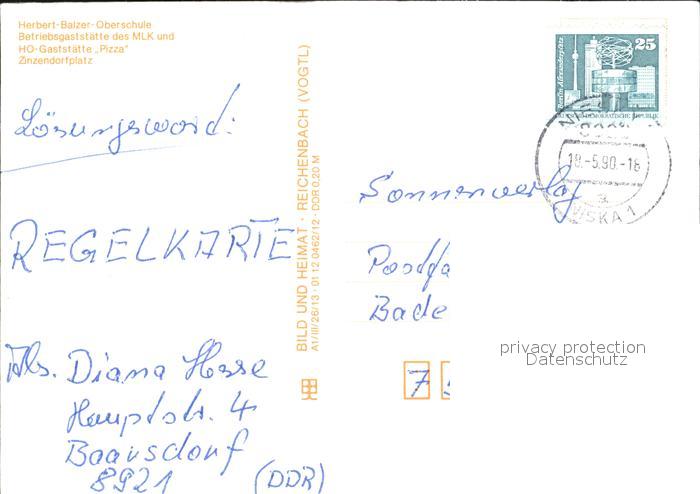 Herbert-Balzer-Oberschule
Betriebsgaststätte des MLK und
HO-Gaststätte „Pizza"
Zinzendorfplatz
Lösungsword:
REGELKARTE
Abs. Diana Hesse
Hauptstr. 4
8921
(DDR)
BILD UND HEIMAT · REICHENBACH (VOGTL)
A1/III/26/13 · 01 12 0462/12 · DDR 0,20 M
25
Berlin-Alexanderplatz
DEMOKRATISCHE REPUBLIK
18.-5.90.-18
a
NISKA 1
Sonnenverlag
Postfa
Bade
7 5
privacy protection
Datenschutz